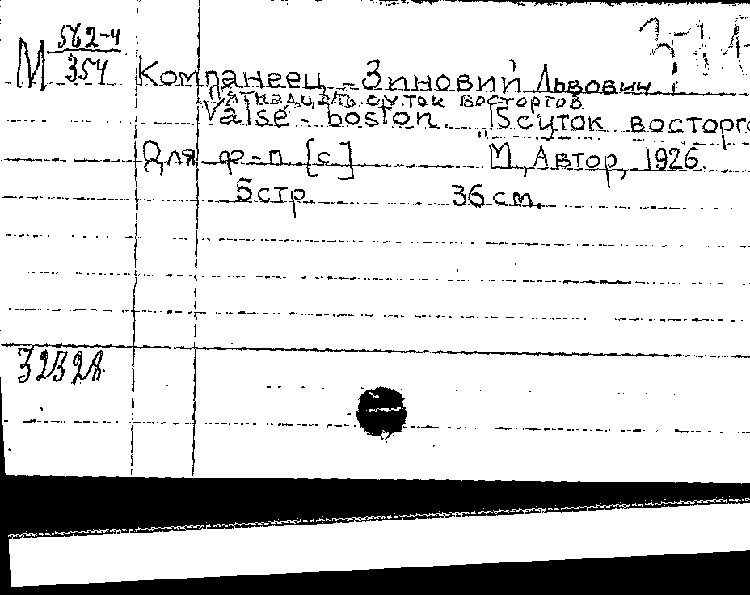 М 562-4
354
Компанеец - Зиновий Львович
Пятнадцать суток восторгов
Valse - boston. "15 суток восторго
Для ф-п [с] М, Автор, 1926.
5 стр. 36 см.
32328